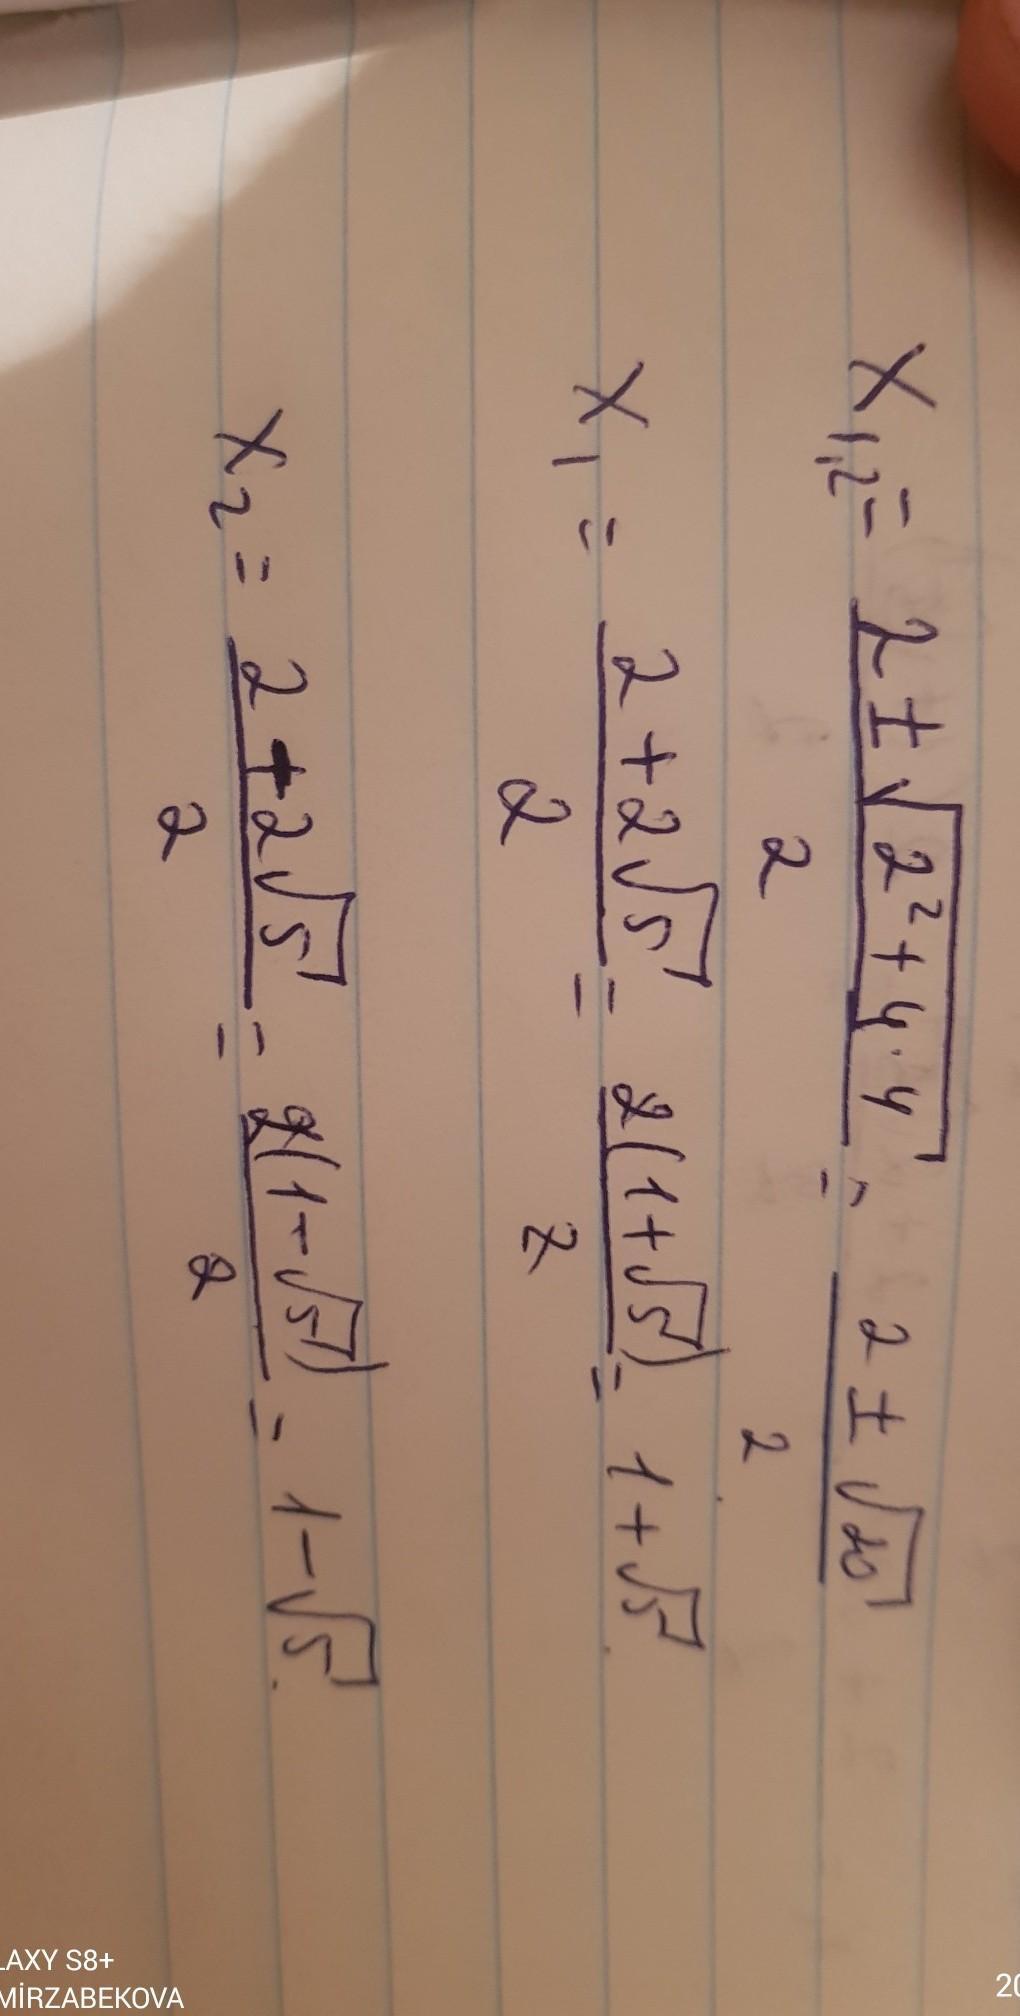 X₁,₂ = (2 ± √(2² + 4·4))/2 = (2 ± √20)/2
X₁ = (2 + 2√5)/2 = 2(1 + √5)/2 = 1 + √5.
X₂ = (2 - 2√5)/2 = 2(1 - √5)/2 = 1 - √5.
LAXY S8+
MİRZABEKOVA
20